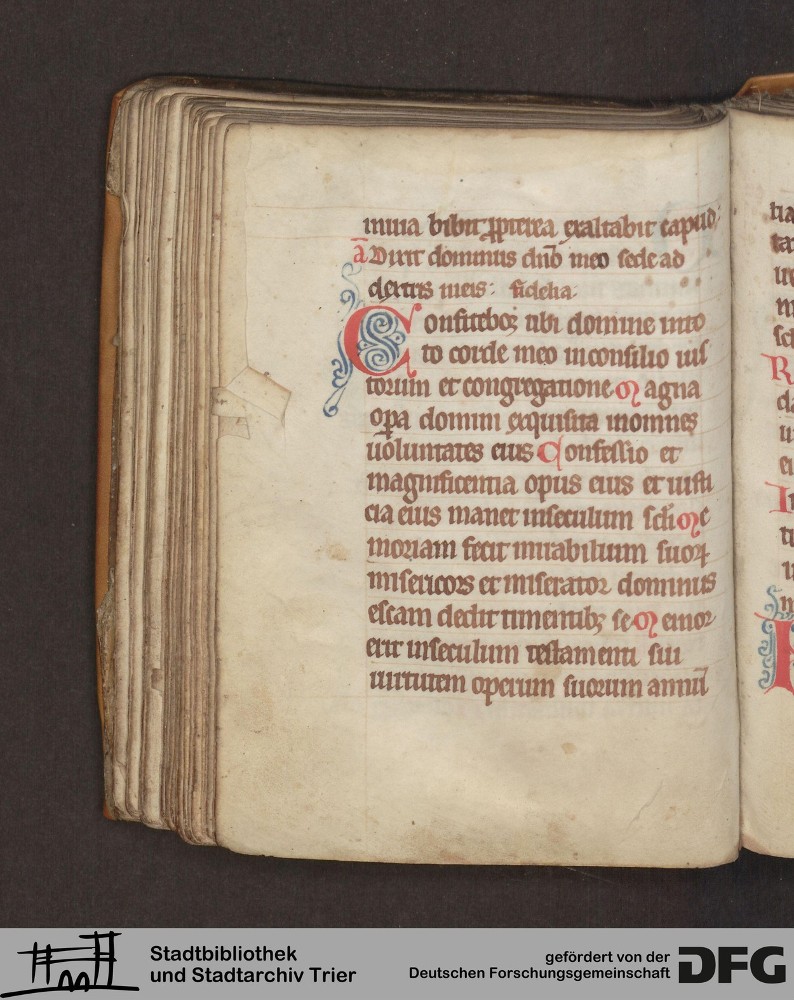 inuia bibit ꝓpterea exaltabit capud.
ā Dixit dominus dn̄o meo sede ad
dextris meis: fidelia.
Confiteboꝛ tibi domine in to
to corde meo in consilio ius
torum et congregatione Magna
oꝑa domini exquisita in omnes
uoluntates eius Confessio et
magnificentia opus eius et iusti
cia eius manet in seculum sc̄li Me
moriam fecit mirabilium suoꝝ
misericors et miserator dominus
escam dedit timentibꝫ se Memor
erit in seculum testamenti sui
uirtutem operum suorum annū
tia
ta
R
da
Stadtbibliothek
und Stadtarchiv Trier
gefördert von der
Deutschen Forschungsgemeinschaft
DFG